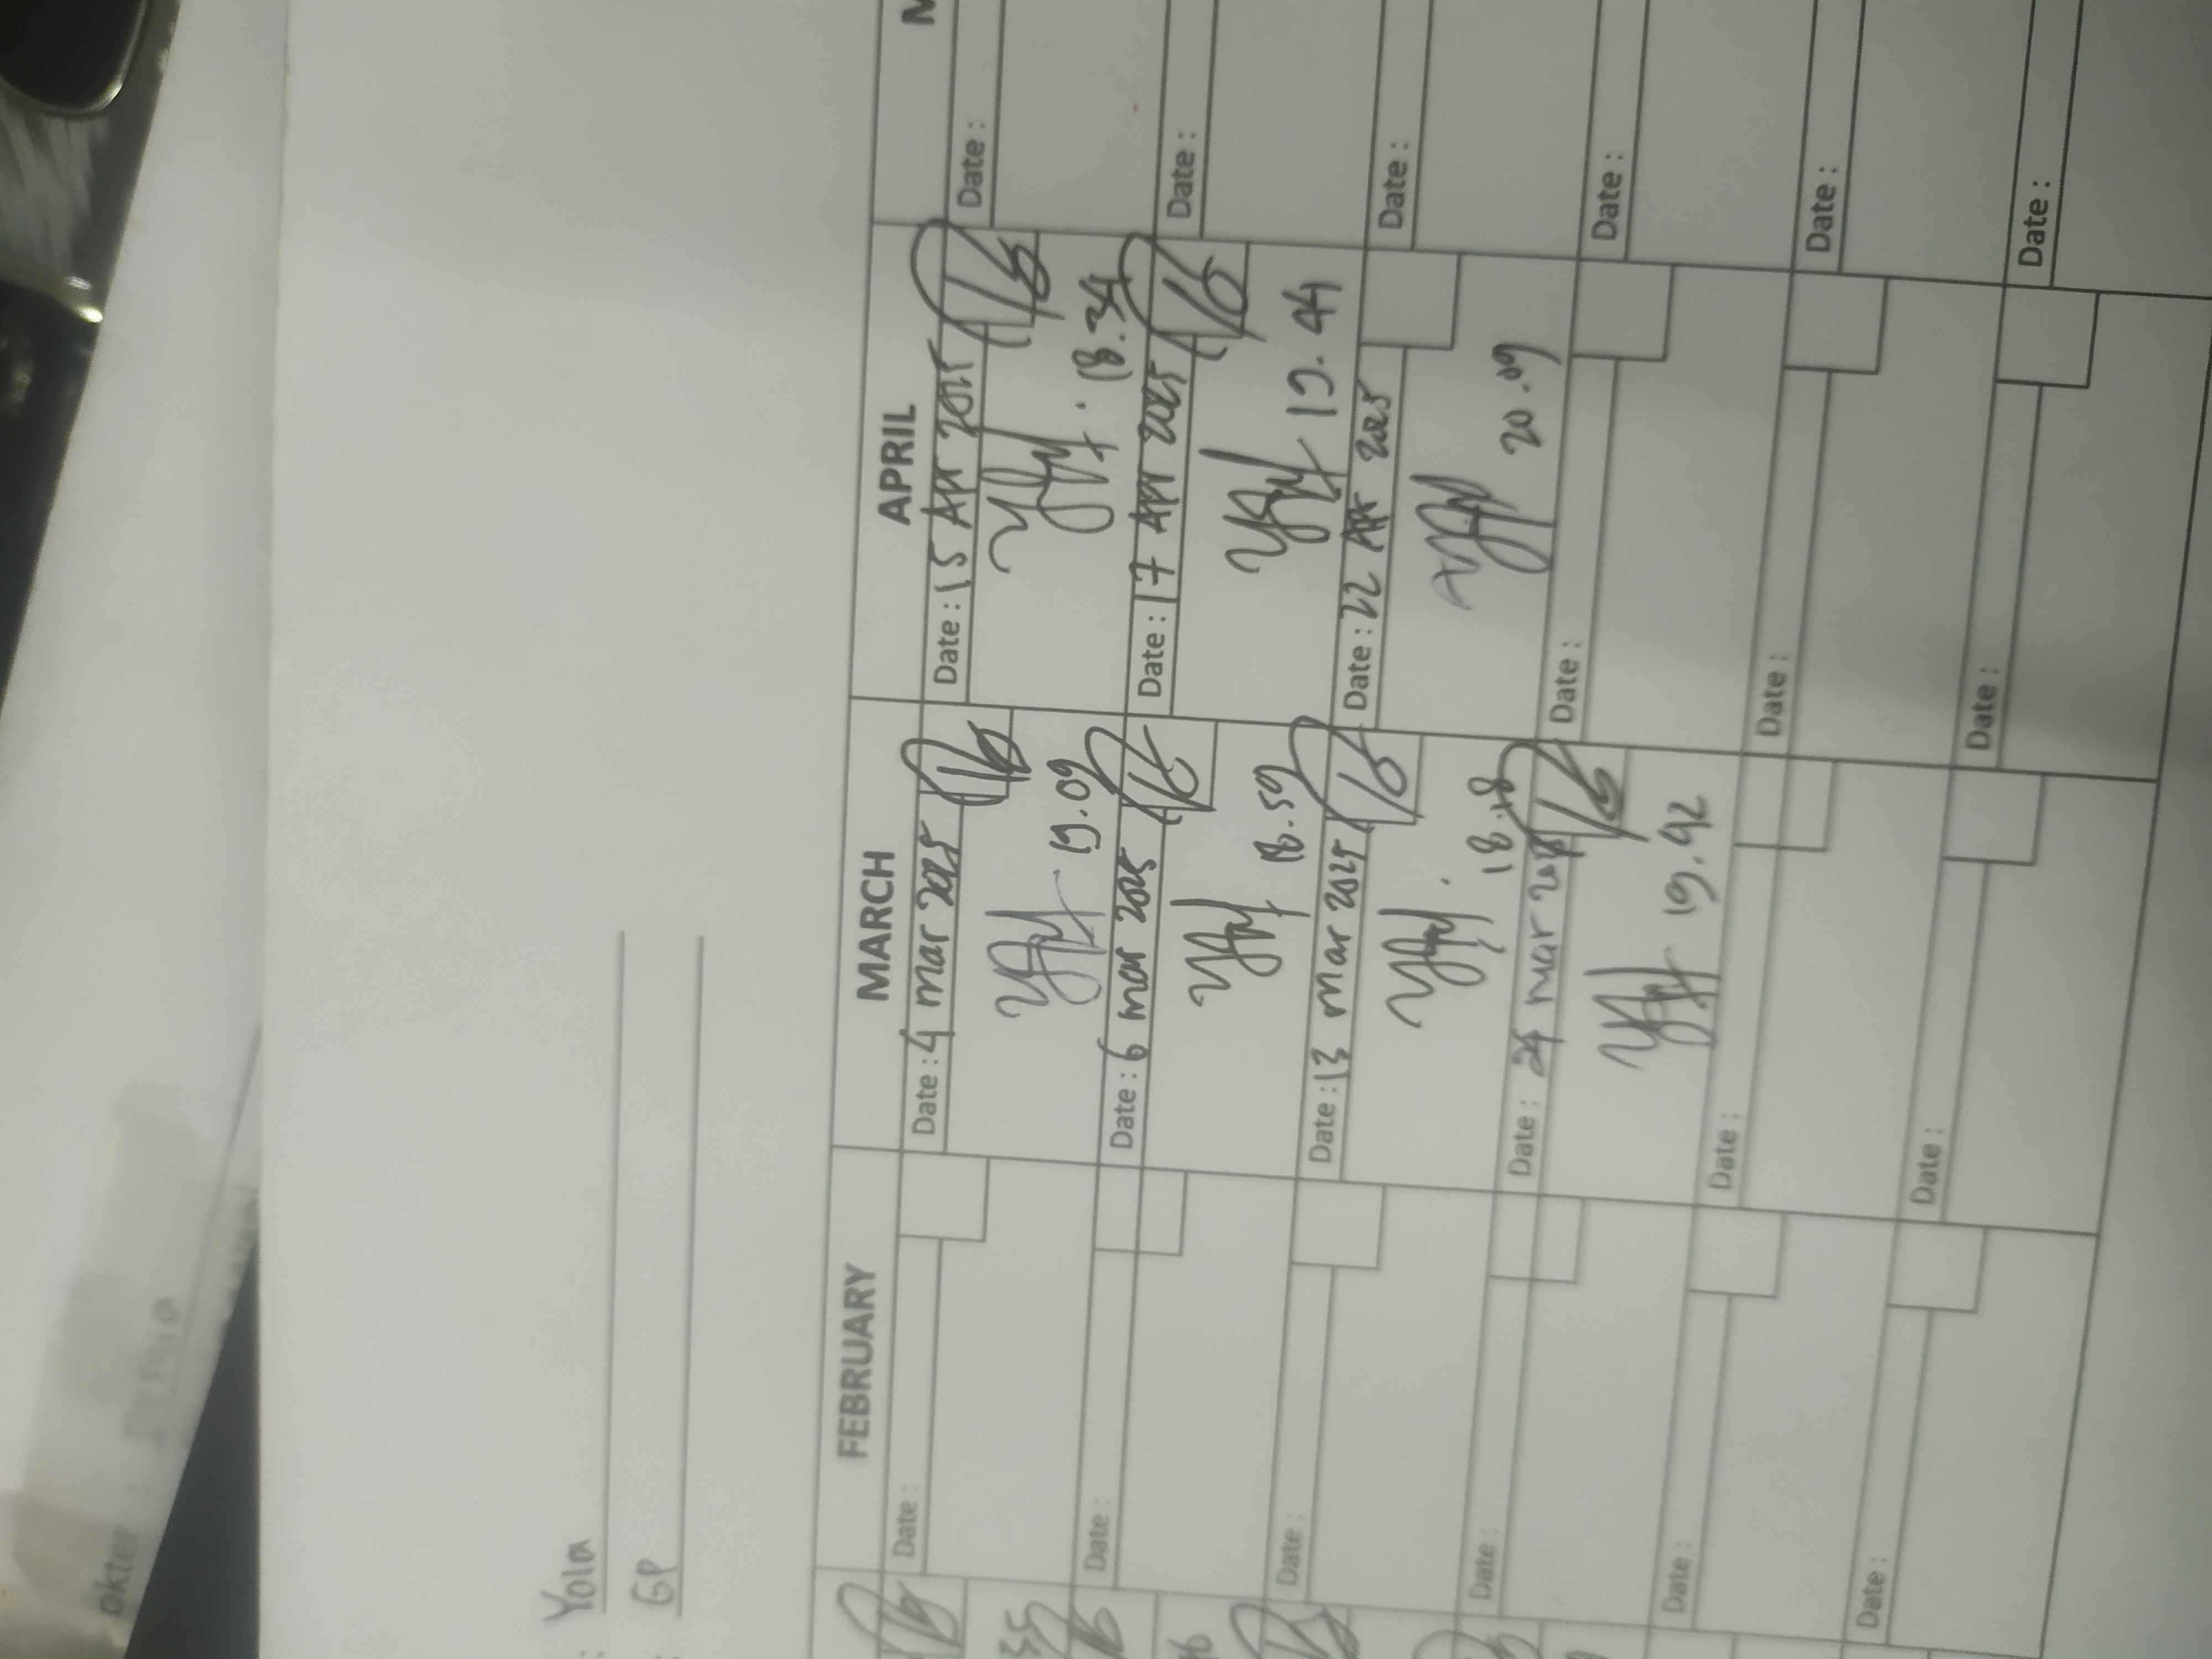 : Yola
: GP
FEBRUARY MARCH APRIL
Date : Date : 4 mar 2025 Date : 15 Apr 2025 Date :
19.09 18.34
Date : Date : 6 mar 2025 Date : 17 Apr 2025 Date :
18.59 19.44
Date : Date : 13 mar 2025 Date : 22 Apr 2025 Date :
18.18 20.09
Date : Date : 24 mar Date : Date :
19.42
Date : Date : Date : Date :
Date : Date : Date : Date :